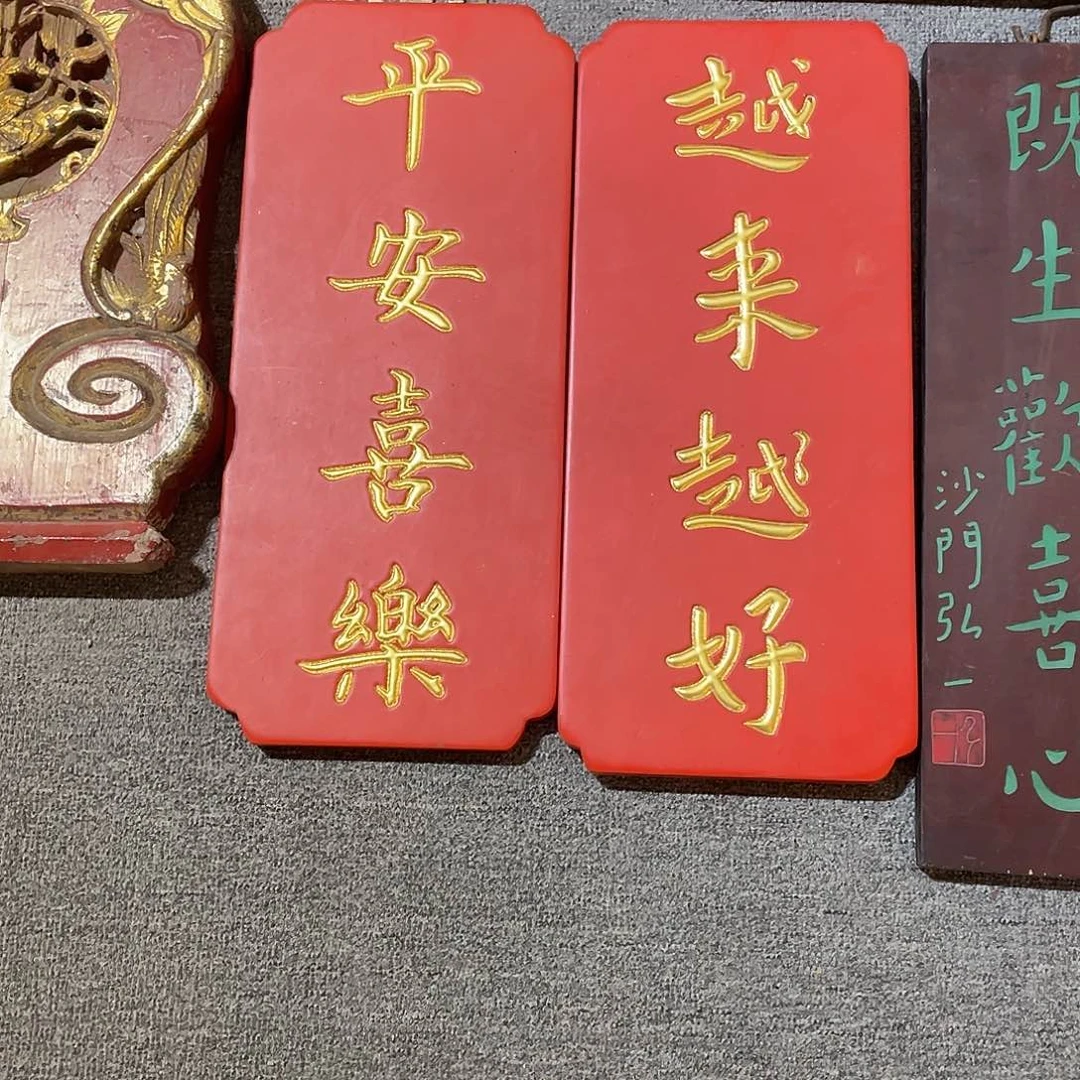 平安喜樂
越来越好
既生歡喜心
沙門弘一